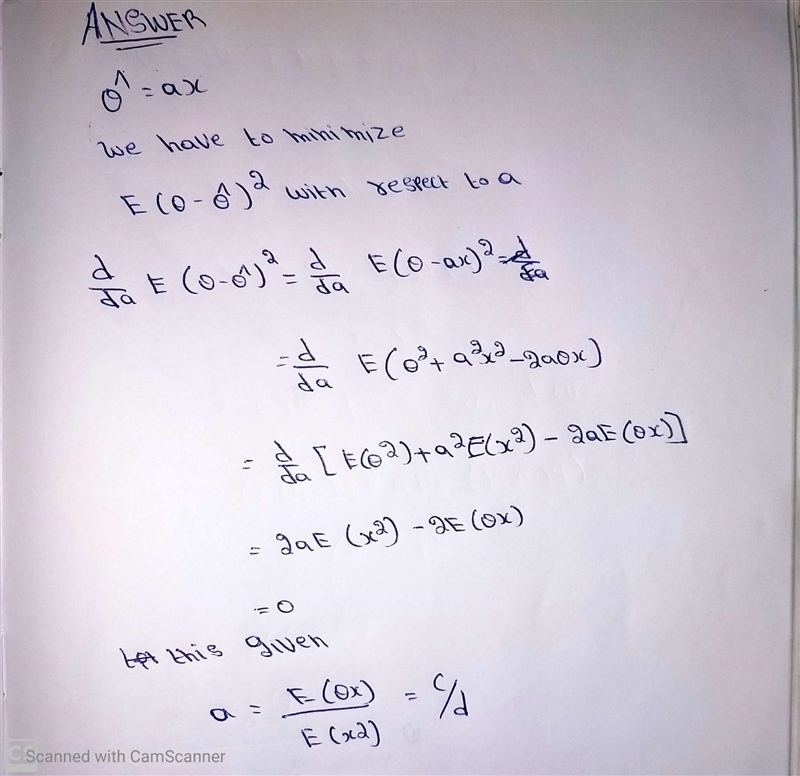 ANSWER
θ^ = ax
we have to minimize
E (θ - θ^)² with respect to a
d/da E (θ-θ^)² = d/da E (θ - ax)² = d/da
= d/da E (θ² + a²x² - 2aθx)
= d/da [E(θ²) + a²E(x²) - 2aE(θx)]
= 2aE (x²) - 2E (θx)
= 0
this given
a = E(θx)/E(x2) = c/d
CS Scanned with CamScanner